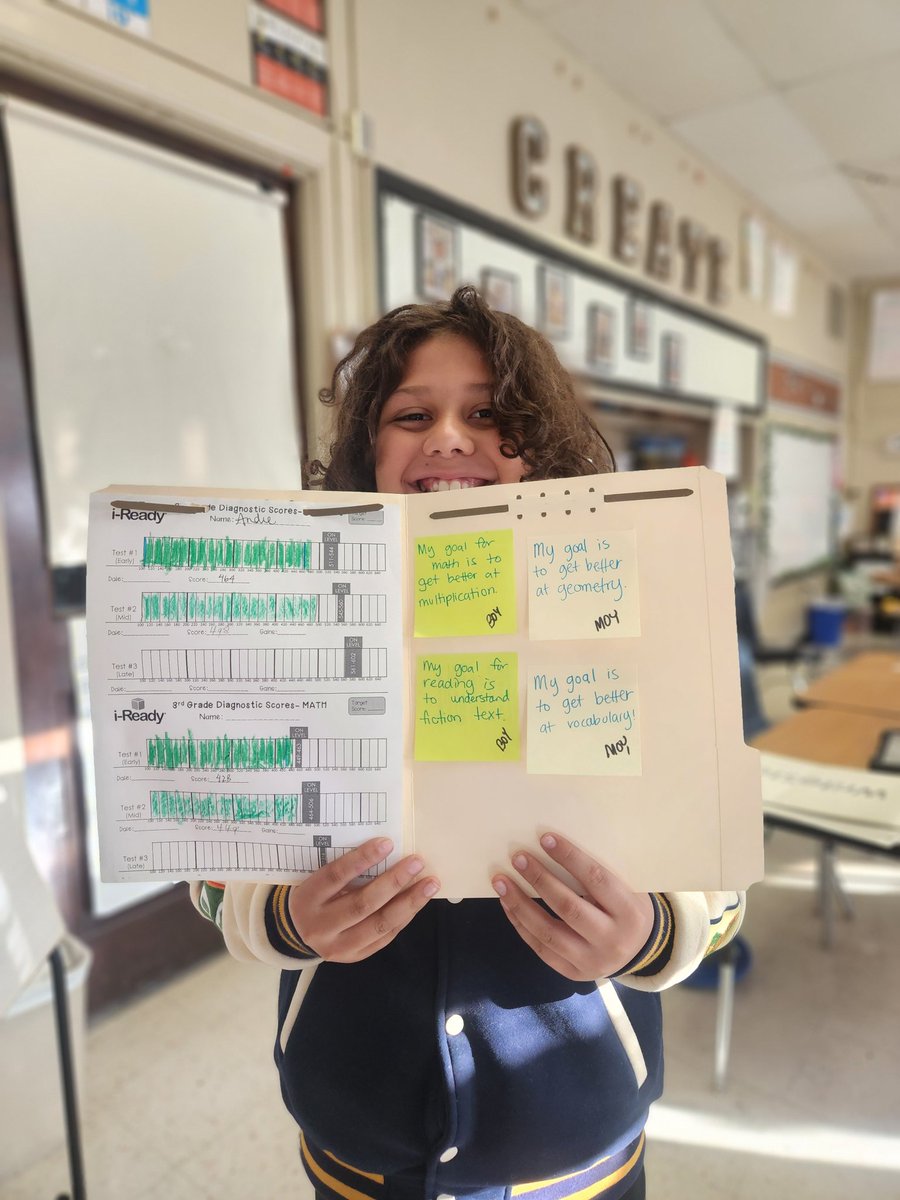 CREATE
i-Ready
de Diagnostic Scores-
Target
Score:
Name: Andie
ON
LEVEL
511-544
Test #1
(Early)
Date: Score: 464
ON
LEVEL
Test #2
(Mid)
Date: Score: Gains:
ON
LEVEL
Test #3
(Late)
Date: Score: Gains:
i-Ready
3rd Grade Diagnostic Scores- MATH
Target
Score:
Name:
ON
LEVEL
Test #1
(Early)
Date: Score: 428
ON
LEVEL
464-506
Test #2
(Mid)
Date: Score: Gains:
ON
LEVEL
Test #3
(Late)
My goal for
math is to
get better at
multiplication.
BOY
My goal is
to get better
at geometry.
MOY
My goal for
reading is
to understand
fiction text.
BOY
My goal is
to get better
at vocabulary!
MOY